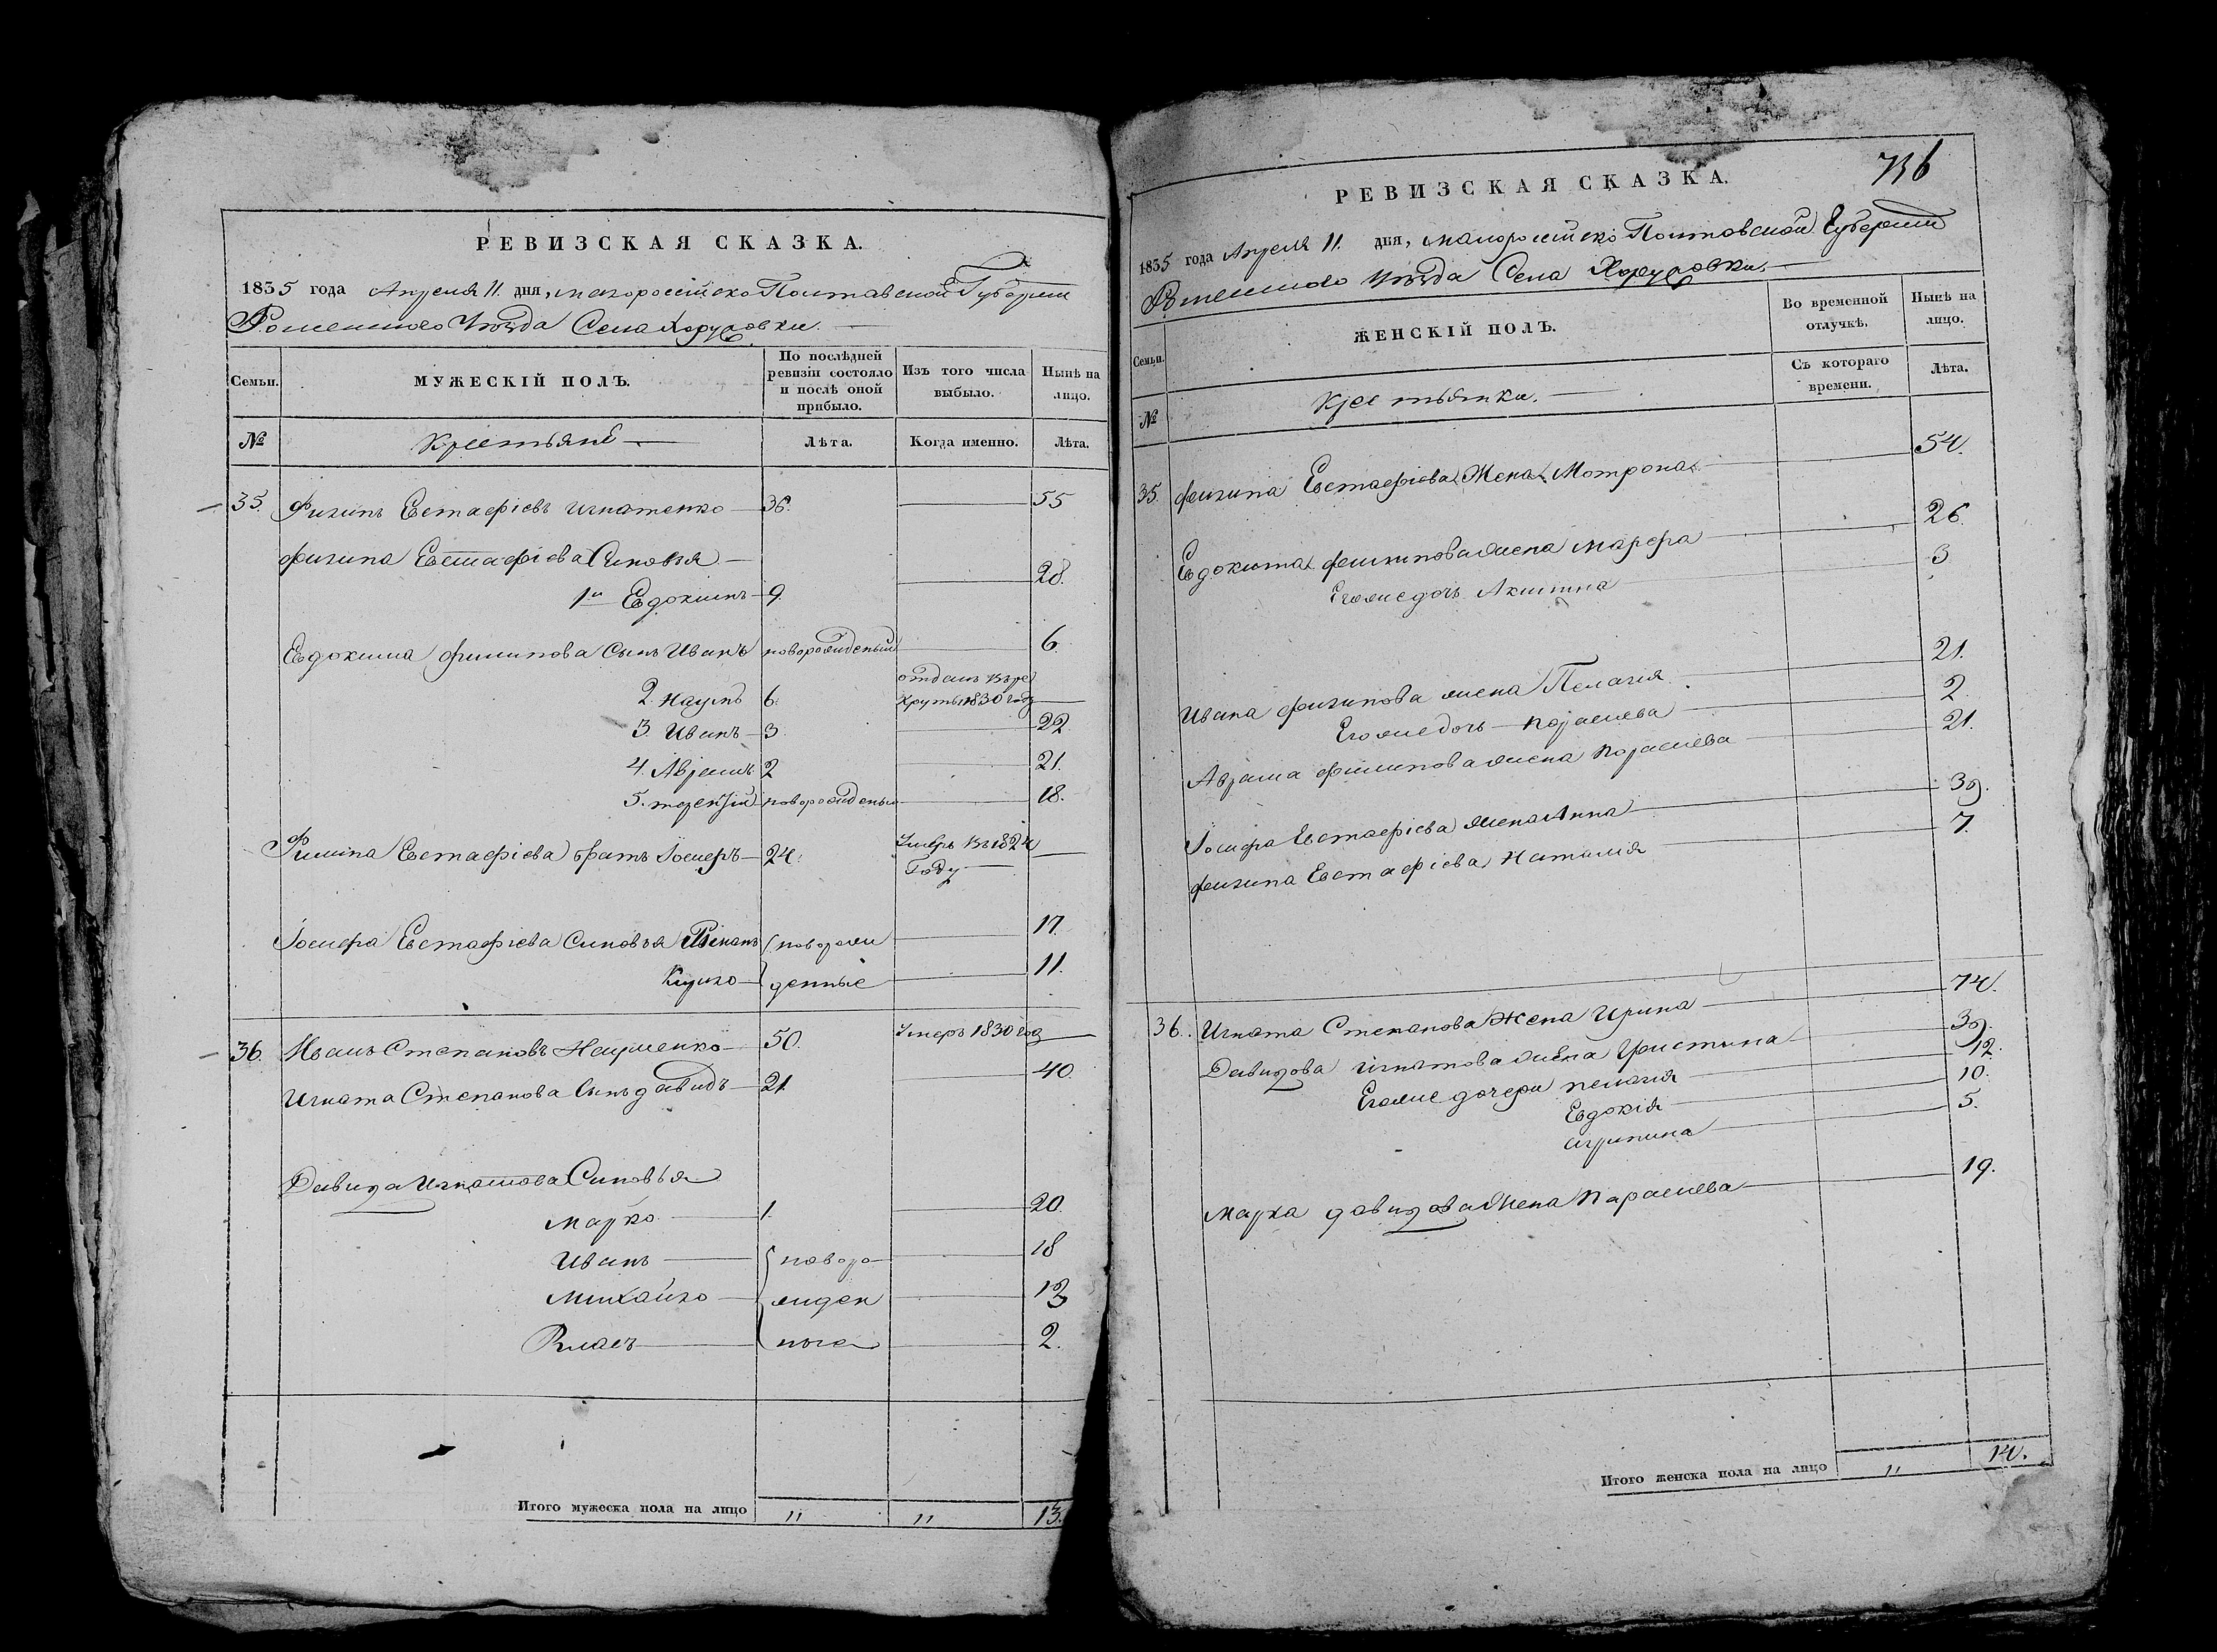 РЕВИЗСКАЯ СКАЗКА.
1835 года Апреля 11. дня, малороссийско Полтавской Губернии
Роменского Уѣзда Села Хоруговки.
Семьи. МУЖЕСКІЙ ПОЛЪ. По послѣдней ревизіи состояло и послѣ оной прибыло. Изъ того числа выбыло. Нынѣ на лицо.
№ Крестьяне Лѣта. Когда именно. Лѣта.
35. Филипъ Евстафіевъ Игнатенко 36. 55
Филипа Евстафіева Сыновья
1й Евдокимъ 9. 28.
Евдокима Филипова Сынъ Иванъ новорожденный 6.
2. Наумъ 6. отданъ въ рекруты 1830 году
3. Иванъ 3. 22
4. Аврамъ 2 21.
5. терентій новорожденый 18.
Филипа Евстафіева братъ Іосифъ 24. Умеръ въ 1824 Году
Іосифа Евстафіева Сыновья Романъ новорож 17.
денные 11.
36. Степановъ Науменко 50. Умеръ 1830 год
Игната Степанова Сынъ давидъ 21 40.
Давида Игнатова Сыновья
Марко 1. 20.
Иванъ новоро 18
Михайло жден 13
Власъ ные 2.
Итого мужеска пола на лицо " " 13.
736
РЕВИЗСКАЯ СКАЗКА.
1835 года Апреля 11. дня, малороссийско Полтавской Губернии
Роменского Уѣзда Села Хоруговки.
Семьи. ЖЕНСКІЙ ПОЛЪ. Во временной отлучкѣ. Нынѣ на лицо.
№ Крестьянки. Съ котораго времени. Лѣта.
35. Филипа Евстафіева Жена Мотрона 54.
Евдокима Филипова жена Марфа 26.
Егоже дочь Акилина 3
Ивана Филипова жена Пелагія 21.
Егоже дочь Параскева 2.
Аврама Филипова жена Параскева 21.
Іосифа Евстафіева жена Анна 39.
Филипа Евстафіева Наталия 7.
36. Игната Степанова Жена Ирина 74.
Давидова Игнатова жена Христина 39.
Егоже дочери пелагія 12.
Евдокія 10.
агрипина 5.
Марка давидова Жена Парасиева 19.
Итого женска пола на лицо " 14.